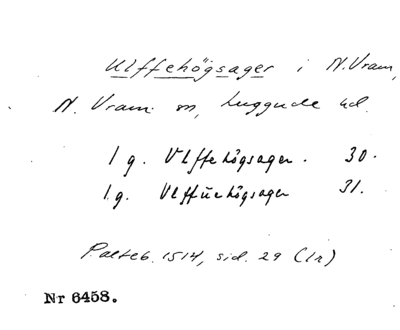 Ulffehögsager i N. Vram,
N. Vram sn, Luggude hd.
1 g. Vlffehögsager. 30.
1 g. Vlffuehögsager 31.
Palteb. 1514, sid. 29 (1r)
Nr 6458.